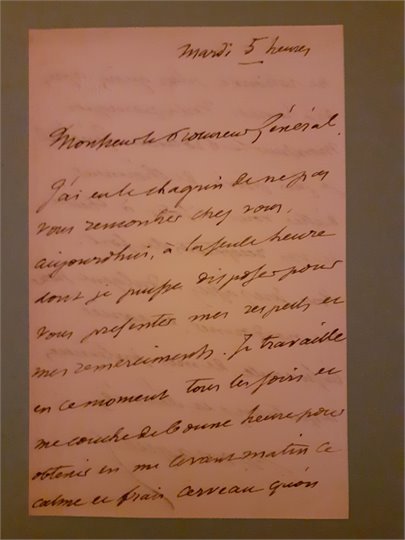 Mardi 5 heures
Monsieur le Procureur Général,
J'ai eu le chagrin de ne pas
vous rencontrer chez vous,
aujourd'hui, à la seule heure
dont je puisse disposer pour
vous présenter mes respects et
mes remerciments. Je travaille
en ce moment tous les soirs et
me couche de bonne heure pour
obtenir en me levant matin ce
calme et frais cerveau qu'on